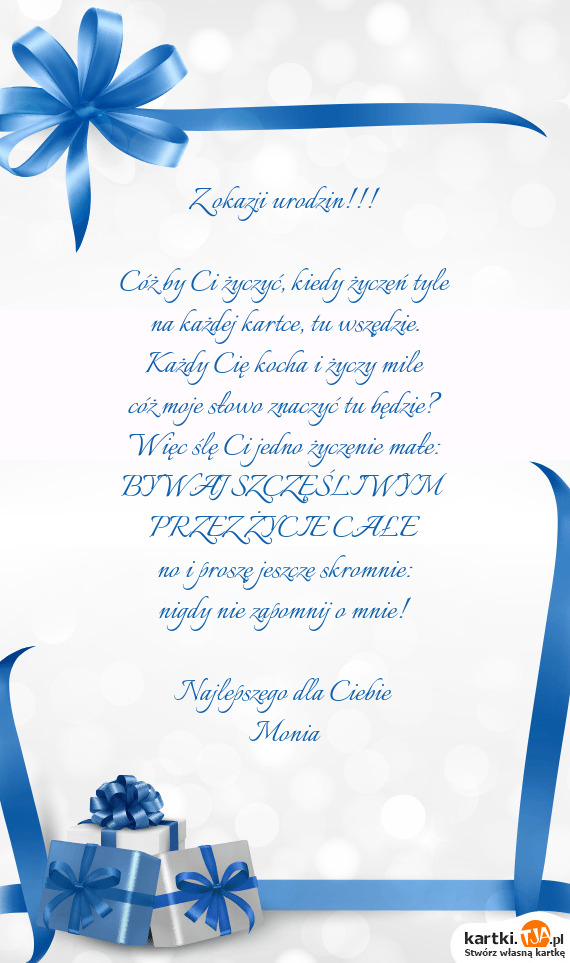 Z okazji urodzin!!!
Cóż by Ci życzyć, kiedy życzeń tyle
na każdej kartce, tu wszędzie.
Każdy Cię kocha i życzy mile
cóż moje słowo znaczyć tu będzie?
Więc ślę Ci jedno życzenie małe:
BYWAJ SZCZĘŚLIWYM
PRZEZ ŻYCIE CAŁE
no i proszę jeszcze skromnie:
nigdy nie zapomnij o mnie!
Najlepszego dla Ciebie
Monia
kartki.TJA.pl
Stwórz własną kartkę